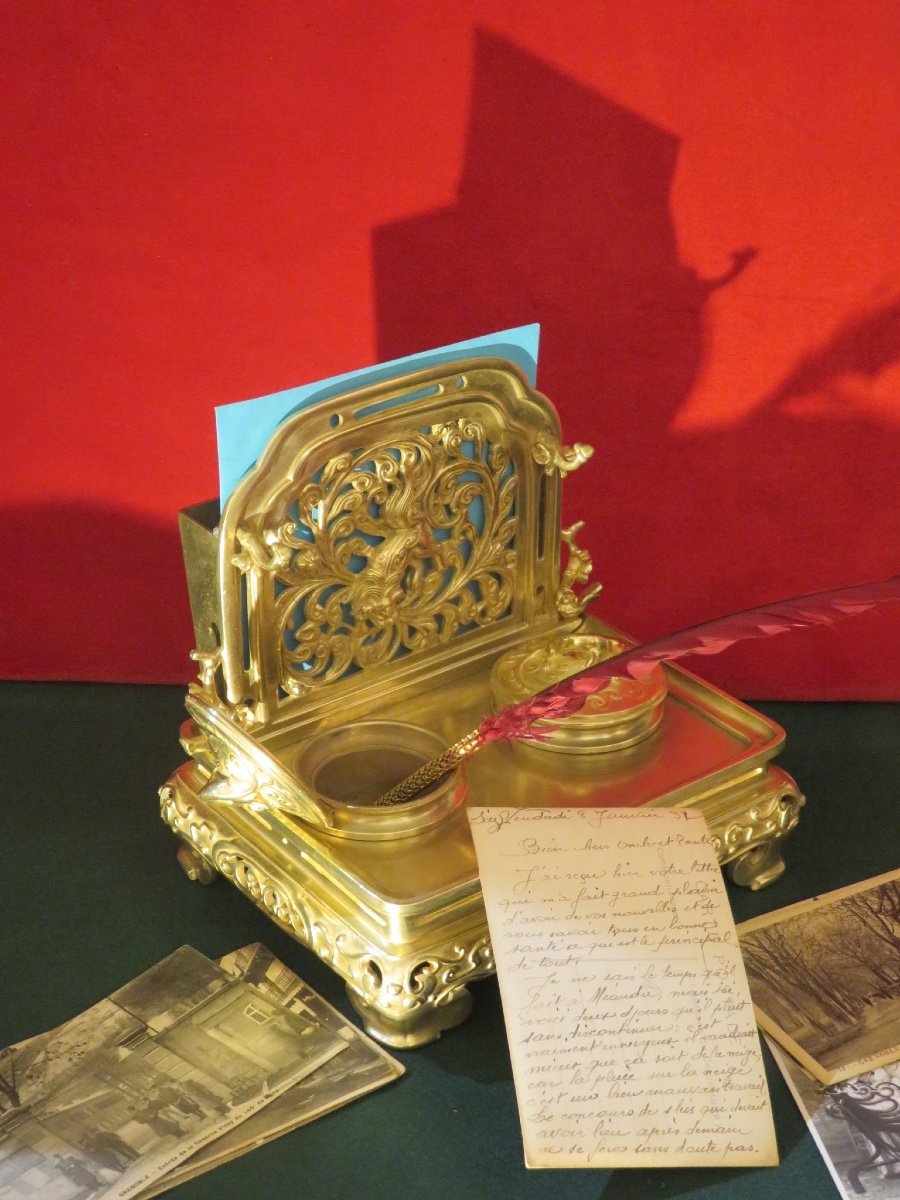 Vendredi 8 Janvier 37
Bien chers Oncle et Tante
J'ai reçu hier votre lettre
qui m'a fait grand plaisir
d'avoir de vos nouvelles et de
vous savoir tous en bonne
santé ce qui est le principal
de tout.
Je ne sais le temps qu'il
fait à Méaudre, mais ici,
voici deux jours qu'il pleut
sans discontinuer; c'est
vraiment ennuyeux il vaudrait
mieux que ça soit de la neige,
car la pluie sur la neige
c'est un bien mauvais travail
Le concours de skis qui devait
avoir lieu après demain
ne se fera sans doute pas.
GRENOBLE - Entrée de la Caserne
GRENOBLE